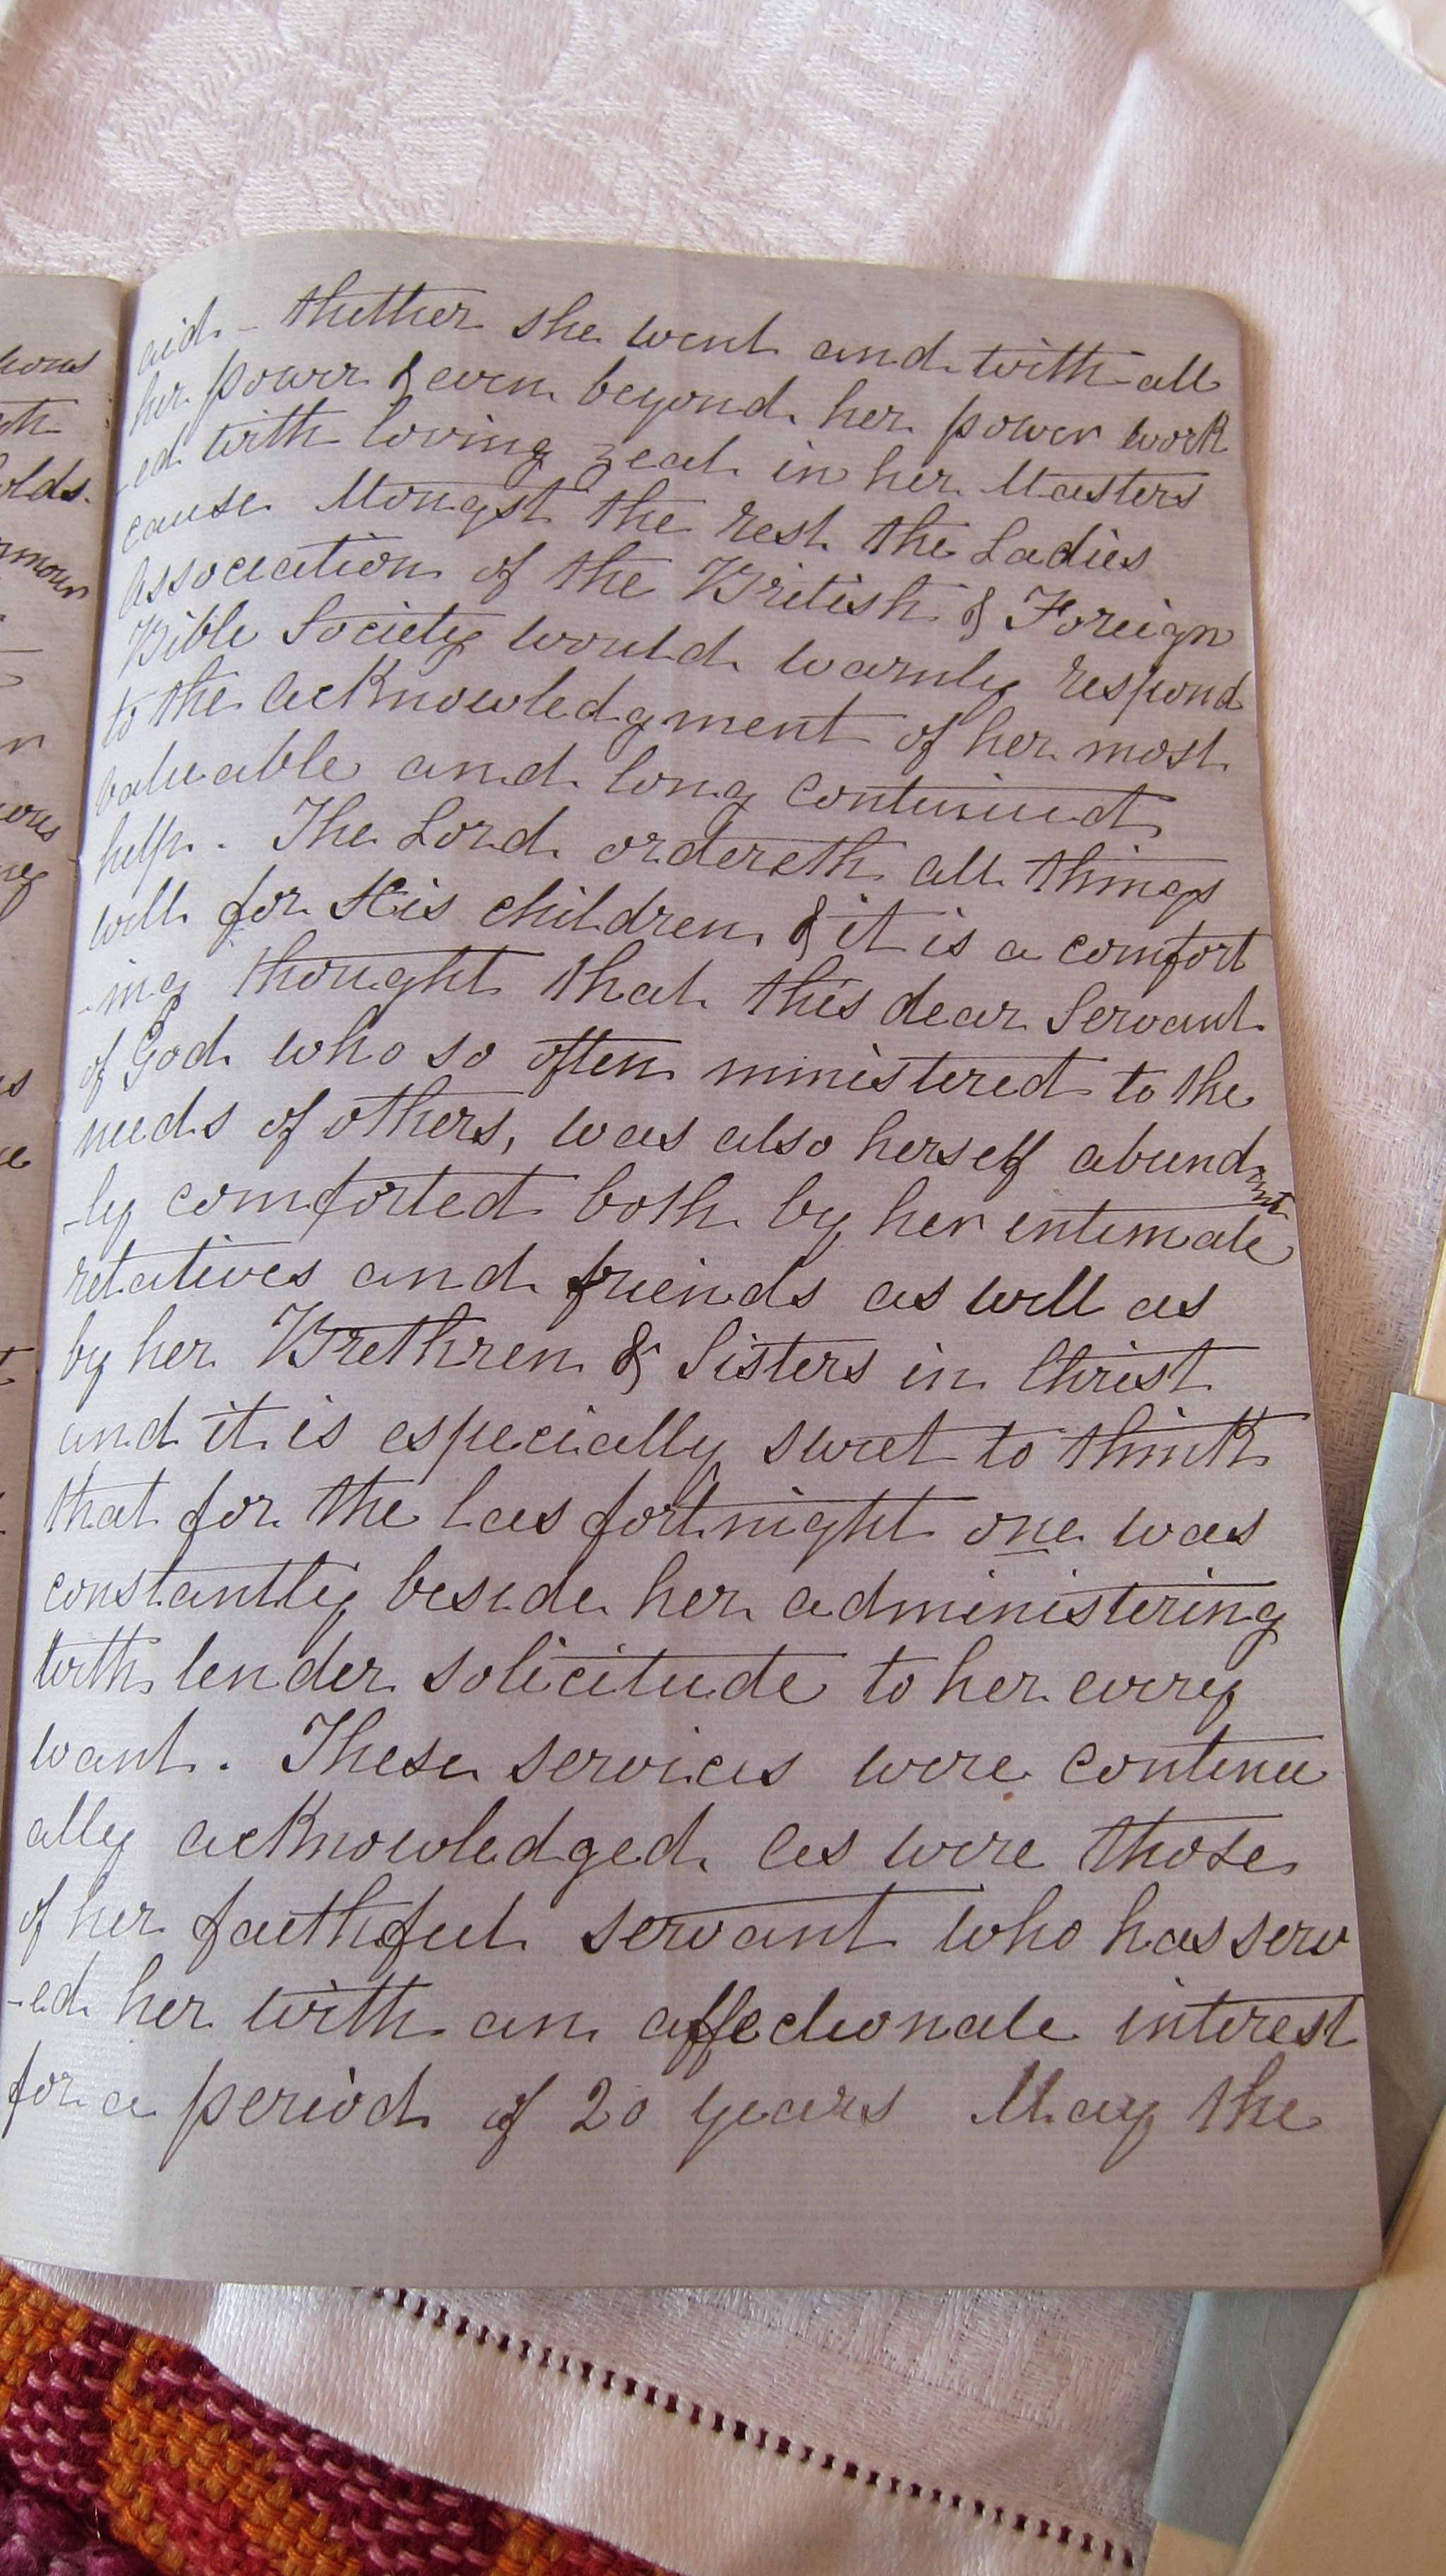 aid - thither she went and with all
her power & even beyond her power work
-ed with loving zeal in her Masters
cause Mongst the rest the Ladies
Association of the British & Foreign
Bible Society would warmly respond
to the acknowledgment of her most
valuable and long continued
help. The Lord ordereth all things
well for His children, & it is a comfort
-ing thought that this dear Servant
of God who so often ministered to the
needs of others, was also herself abundant
-ly comforted both by her intimate
relatives and friends as well as
by her Brethren & Sisters in Christ
and it is especially sweet to think
that for the las fortnight one was
constantly beside her administering
with tender solicitude to her every
want. These services were continu
ally acknowledged as were those
of her faithful servant who has serv
-ed her with an affectionate interest
for a period of 20 years May the